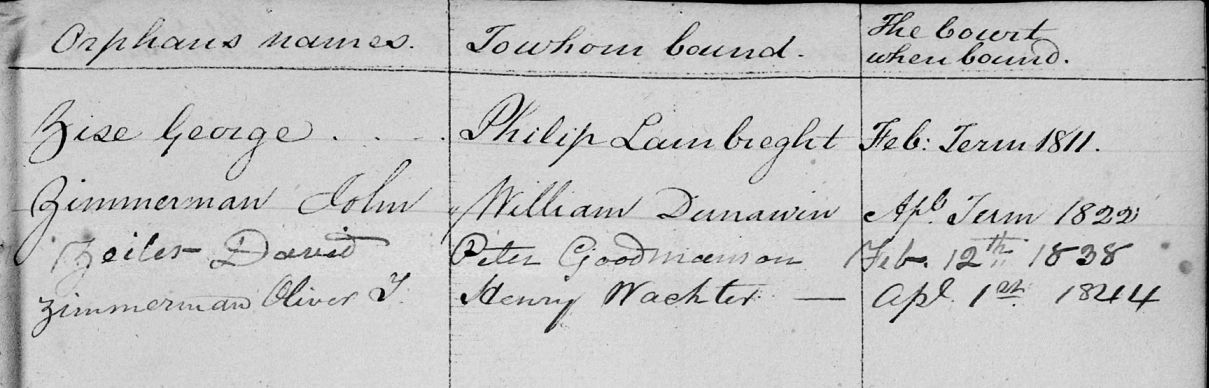 Orphans names. To whom bound. The Court
when bound.
Zise George . . . . Philip Lambreght Feb: Term 1811.
Zimmerman John William Dunawin Apl. Term 1822
Zeiler David Peter Goodmanson Feb. 12th 1838
Zimmerman Oliver T. Henry Wachter — Apl. 1st 1844